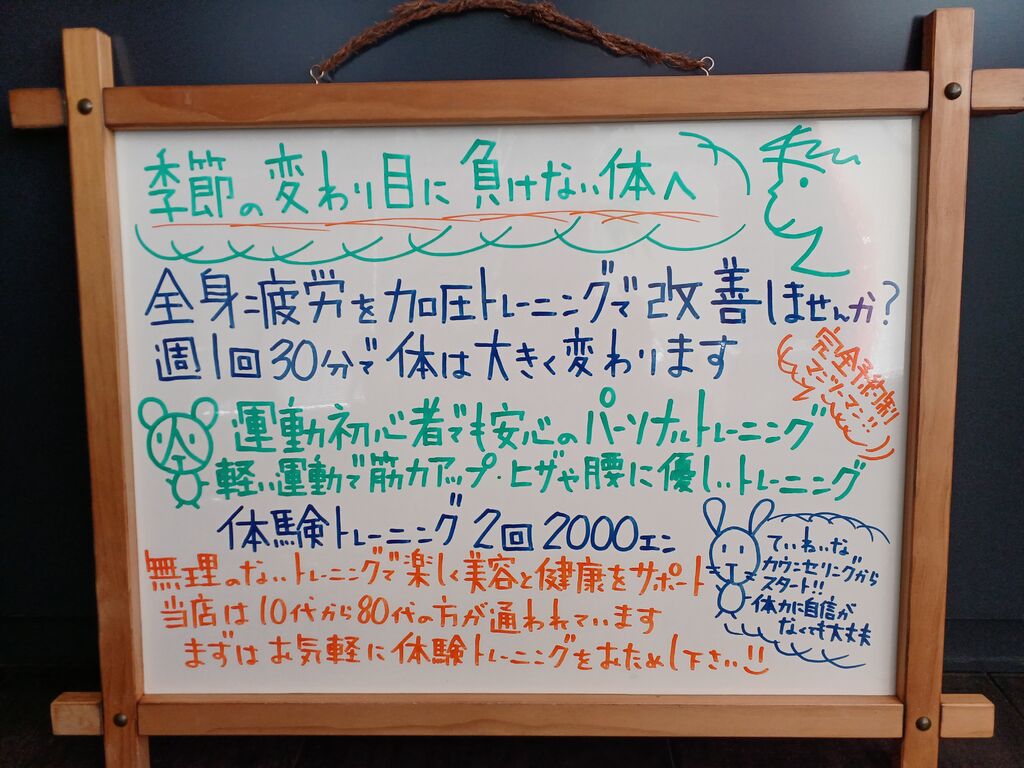 季節の変わり目に負けない体へ
全身疲労を加圧トレーニングで改善しませんか?
週1回30分で体は大きく変わります
完全予約制
マンツーマン!!
運動初心者でも安心のパーソナルトレーニング
軽い運動で筋力アップ・ヒザや腰に優しいトレーニング
体験トレーニング2回2000エン
ていねいな
カウンセリングから
スタート!!
体力に自信が
なくても大丈夫
無理のないトレーニングで楽しく美容と健康をサポート
当店は10代から80代の方が通われています
まずはお気軽に体験トレーニングをおためし下さい!!